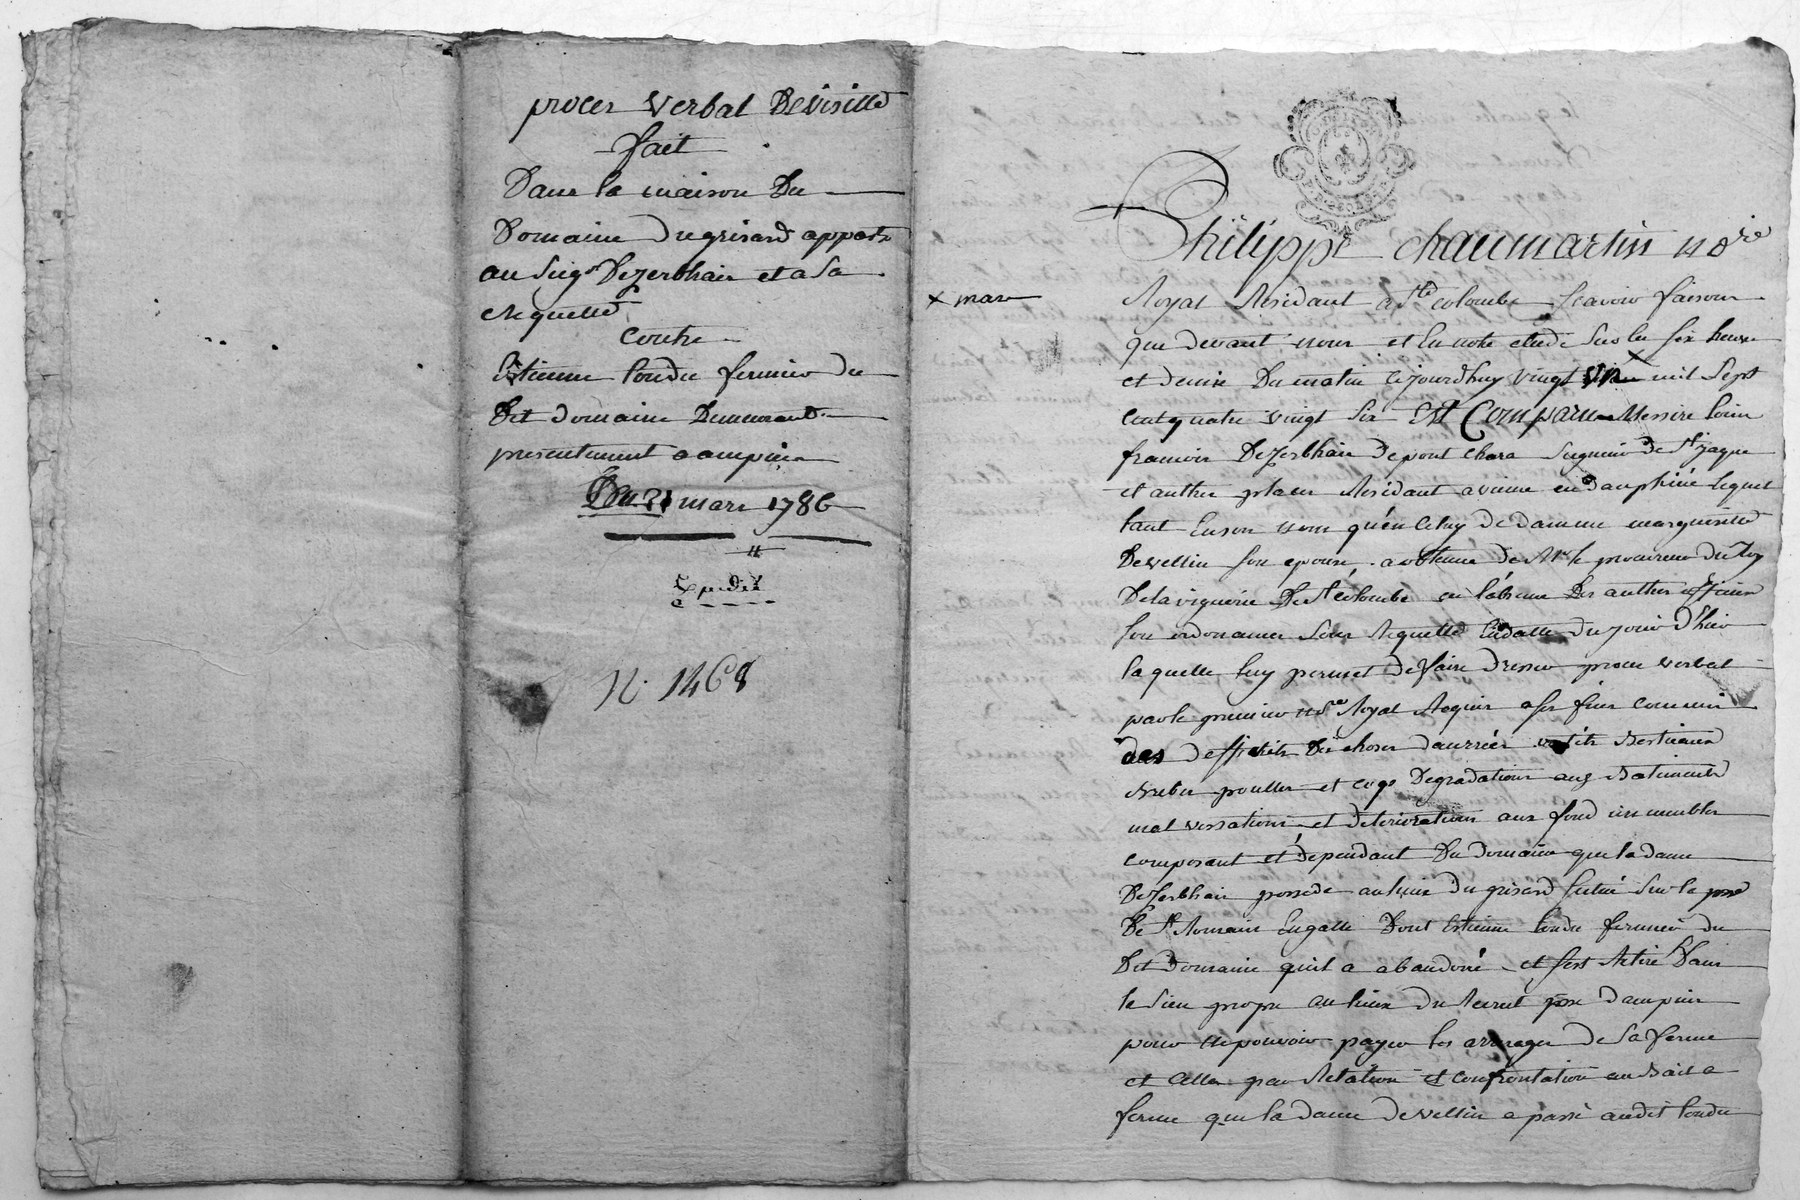 proces verbal De visitte
fait
Dans la maison Du
Domaine Du grisard appart
au Seigr De Jerbhais et a Sa
Requette
contre
Estienne londu fermier du
Dit domaine Demeurant
presentement a ampuis
Du 21 mars 1786
Expedié
N. 1468
Philippe chaumartin nore
x mars
Royal Residant a Ste colombe Scavoir faisons
que devant nous et En notre etude Sur les six heures
et demie Du matin Cejourdhuy vingt un x mil Sept
Cent quatre vingt Six Est Comparu Messire louis
francois De Jerbhais De pont Chara Seigneur de St Jayme
et auttres places Residant a vienne en dauphiné Lequel
tant En son nom qu'en Celuy de damme margueritte
De vellin Son epouse a obtenu de Mr le procureur Du Roy
De la viguerie De Ste Colombe en l'absence Des auttres officiers
Son ordonnance Sous Requette En datte Du jour D'hier
la quelle luy permet De faire Dresser proces verbal
par le premier nore Royal Requis a Ses fins commis
des deffickits Des choses danrrées Bestiaux
poulles et coqs Degradations aux Batiments
mal verssations et deteriorations aux fond immeubles
composant et dependant Du domaine que la dame
De Jerbhais possede au lieu du grisard Situé Sur la psse
De St Romain En galle Dont Estienne londu fermier du
Dit Domaine qu'il a abandoné et s'est Retiré Dans
le Sien propre au lieux du Recrut psse dampuis
pour ne pouvoir payer les arrerages De Sa ferme
et Celles par Relation et confrontation au Bail a
ferme que la dame De vellin a passé audit londu